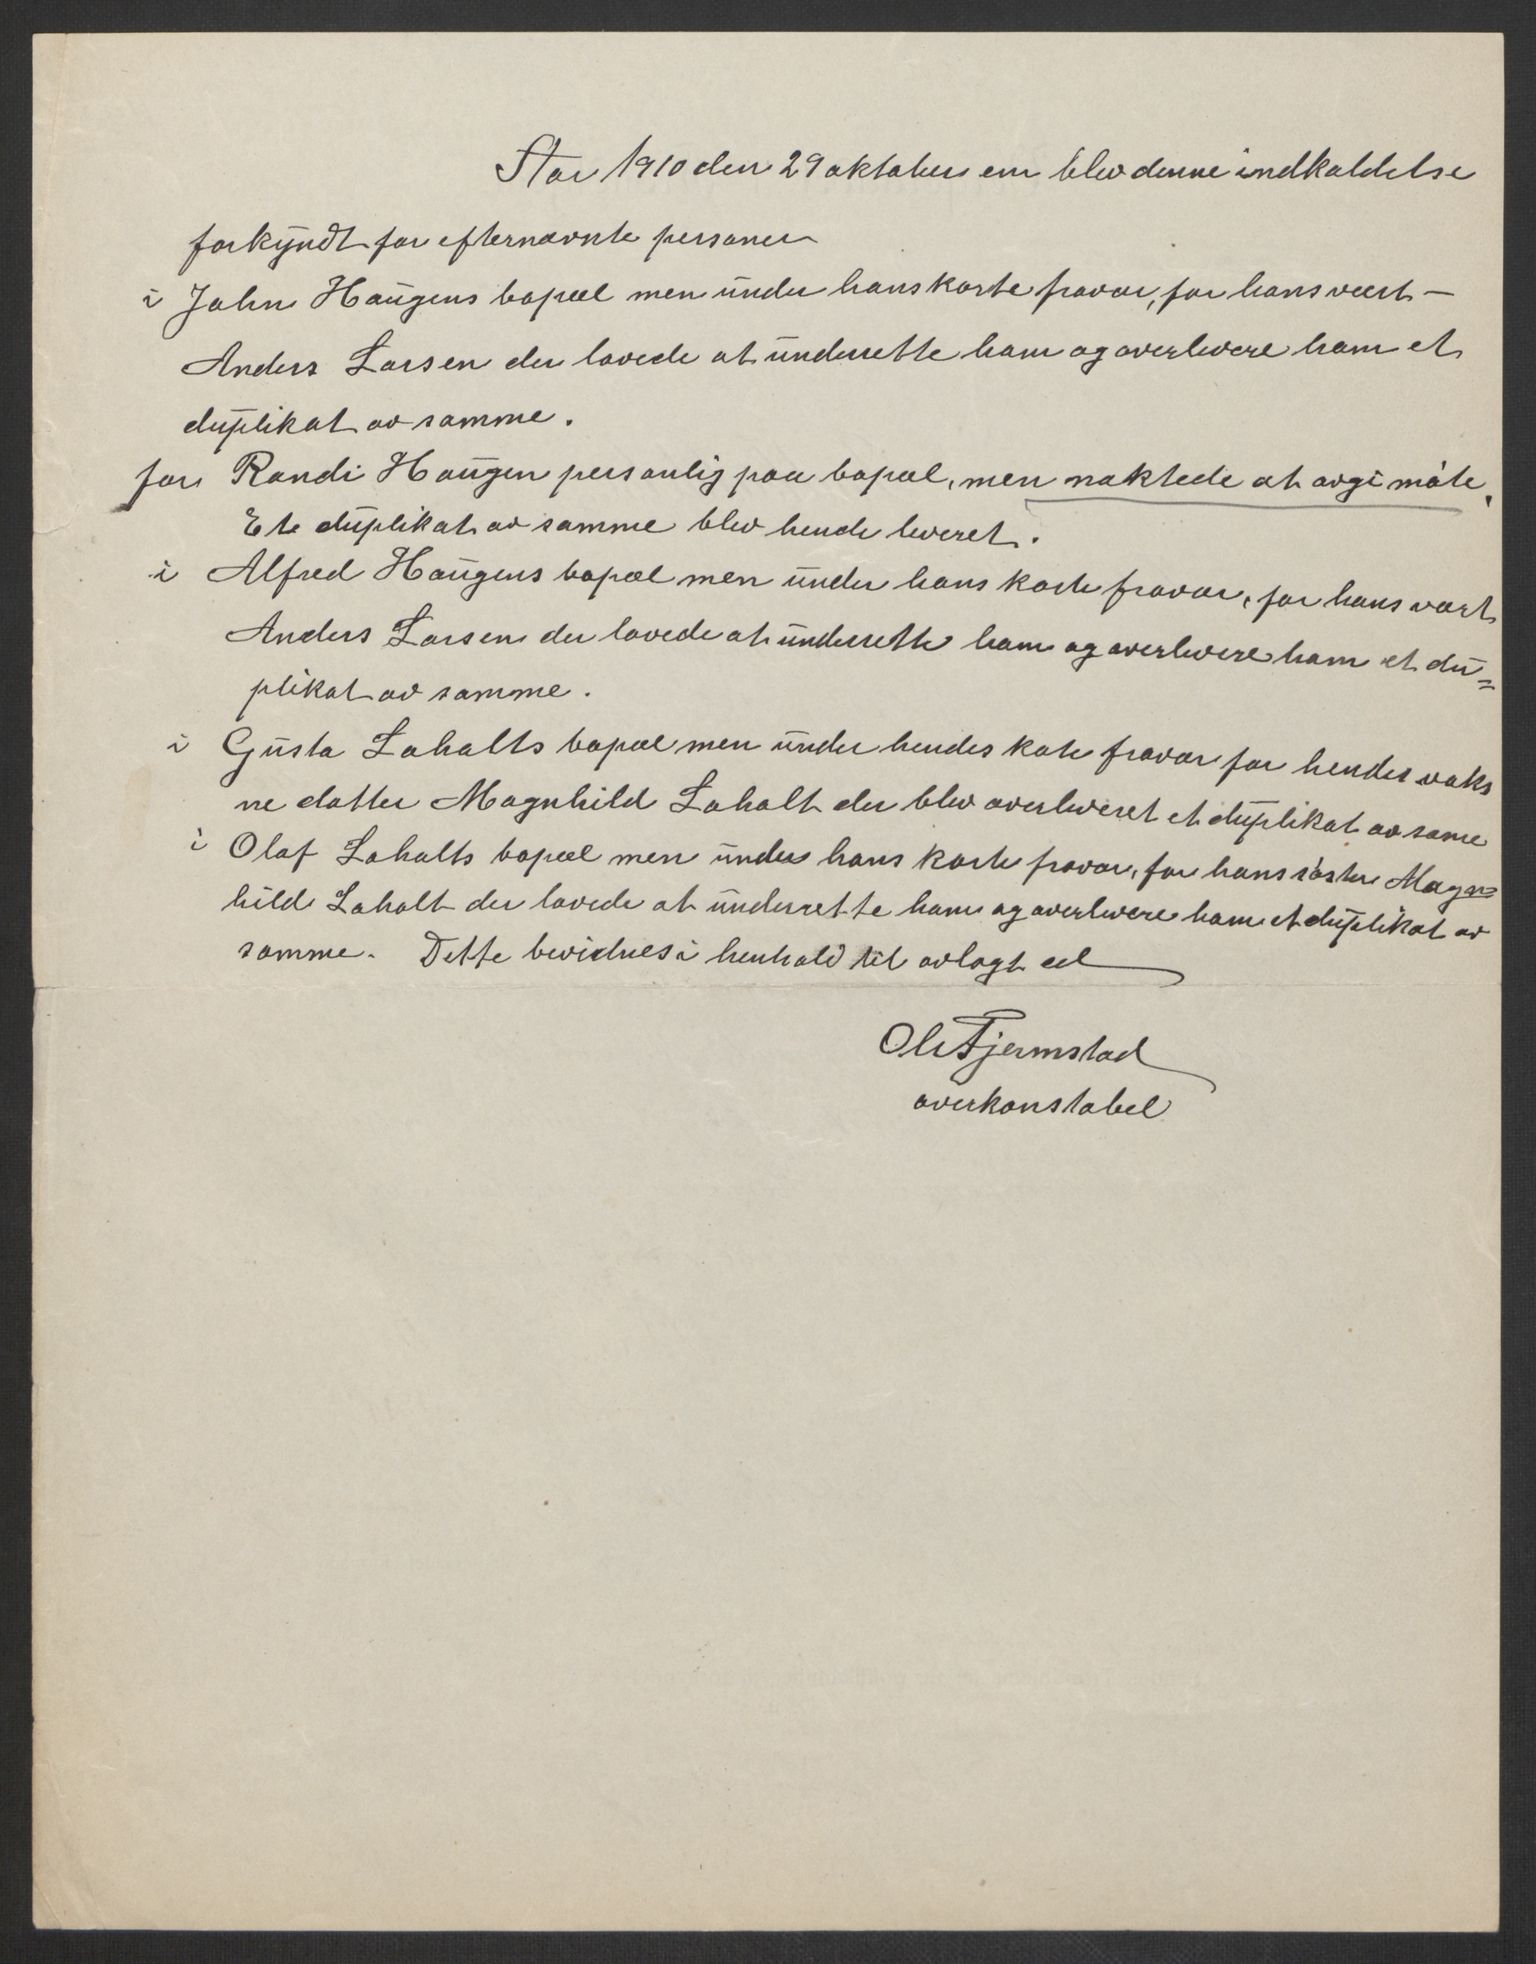 Aar 1910 den 29 oktober em blev denne indkaldelse
forkyndt for efternævnte personer
i John Haugens bopæl men under hans korte fravær, for hans vært –
Anders Larsen der lovede at underrette ham og overlevere ham et
duplikat av samme.
for Randi Haugen personlig paa bopæl, men næktede at avgi møte,
Et duplikat av samme blev hende leveret.
i Alfred Haugens bopæl men under hans korte fravær, for hans vært
Anders Larsen der lovede at underrette ham og overlevere ham et du=
plikat av samme.
i Gusta Loholts bopæl men under hendes kote fravær for hendes voks
ne datter Magnhild Loholt der blev overleveret et duplikat av same
i Olaf Loholts bopæl men under hans korte fravær, for hans søster Magn=
hild Loholt der lovede at underrette ham og overlevere ham et duplikat av
samme. Dette bevidnes i henhold til avlagt ed
Ole Fjermstad
overkonstabel